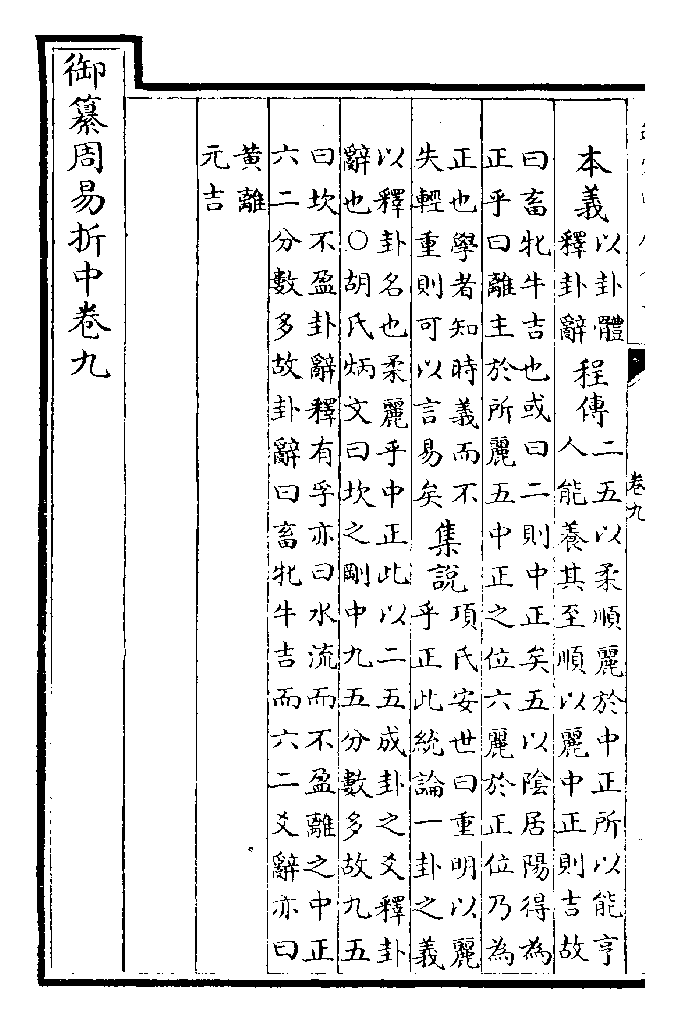 本義
以卦體
釋卦辭
程傳
二五以柔順麗於中正所以能亨
人能養其至順以麗中正則吉故
曰畜牝牛吉也或曰二則中正矣五以陰居陽得為
正乎曰離主於所麗五中正之位六麗於正位乃為
正也學者知時義而不
失輕重則可以言易矣
集説
項氏安世曰重明以麗
乎正此統論一卦之義
以釋卦名也柔麗乎中正此以二五成卦之爻釋卦
辭也○胡氏炳文曰坎之剛中九五分數多故九五
曰坎不盈卦辭釋有孚亦曰水流而不盈離之中正
六二分數多故卦辭曰畜牝牛吉而六二爻辭亦曰
黃離
元吉
御纂周易折中卷九
卷九